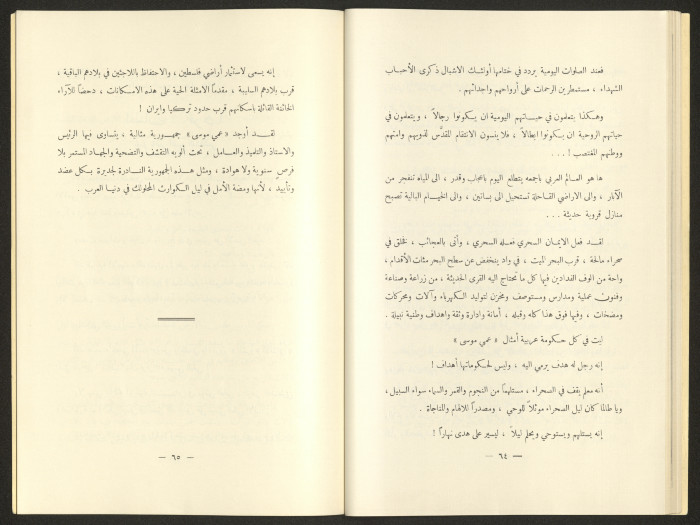 فعند الصلوات اليومية يردد في ختامها أولئك الاشبال ذكرى الأحباب
الشهداء ، مستمطرين الرحمات على أرواحهم واجداثهم .
وهكذا يتعلمون في حياتهم اليومية ان يكونوا رجالاً ، ويتعلمون في
حياتهم الروحية ان يكونوا ابطالاً ، فلا ينسون الانتقام المقدَّس لذويهم وامتهم
ووطنهم المغتصب ! . . .
ها هو العالم العربي باجمعه يتطلع اليوم باعجاب وقدر ، الى المياه تتفجر من
الآبار ، والى الاراضي القاحلة تستحيل الى بساتين ، والى الخيام البالية تصبح
منازل قروية حديثة . . .
لقد فعل الايمان السحري فعله السحري ، وأتى بالعجائب ، فخلق في
صحراء مالحة ، قرب البحر الميت ، في واد ينخفض عن سطح البحر مئات الأقدام ،
واحة من الوف الفدادين فيها كل ما تحتاج اليه القرى الحديثة ، من زراعة وصناعة
وفنون عملية ومدارس ومستوصف ومخزن لتوليد الكهرباء وآلات ومحركات
ومضخات ، وفيها فوق هذا كله وقبله ، أمانة وادارة وثقة واهداف وطنية نبيلة .
ليت في كل حكومة عربية أمثال « عمي موسى »
إنه رجل له هدف يرمي اليه ، وليس لحكوماتها أهداف !
أنه معلم يقف في الصحراء ، مستلهماً من النجوم والقمر والسماء سواء السبيل ،
ويا طالما كان ليل الصحراء موئلاً للوحي ، ومصدراً للالهام والمناجاة .
إنه يستلهم ويستوحي ويحلم ليلاً ، ليسير على هدى نهاراً !
— ٦٤ —
إنه يسعى لاستثمار أراضي فلسطين ، والاحتفاظ باللاجئين في بلادهم الباقية ،
قرب بلادهم السليبة ، مقدماً الامثلة الحية على هذه الامكانات ، دحضاً للآراء
الخائنة القائلة باسكانهم قرب حدود تركيا وايران !
لقد أوجد « عمي موسى » جمهورية مثالية ، يتساوى فيها الرئيس
والاستاذ والتلميذ والعامل ، تحت ألوية التقشف والتضحية والجهاد المستمر بلا
فرص سنوية ولا هوادة ، ومثل هذه الجمهورية النادرة لجديرة بكل عضد
وتأييد ، لأنها ومضة الأمل في ليل الكوارث المحلولك في دنيا العرب .
— ٦٥ —